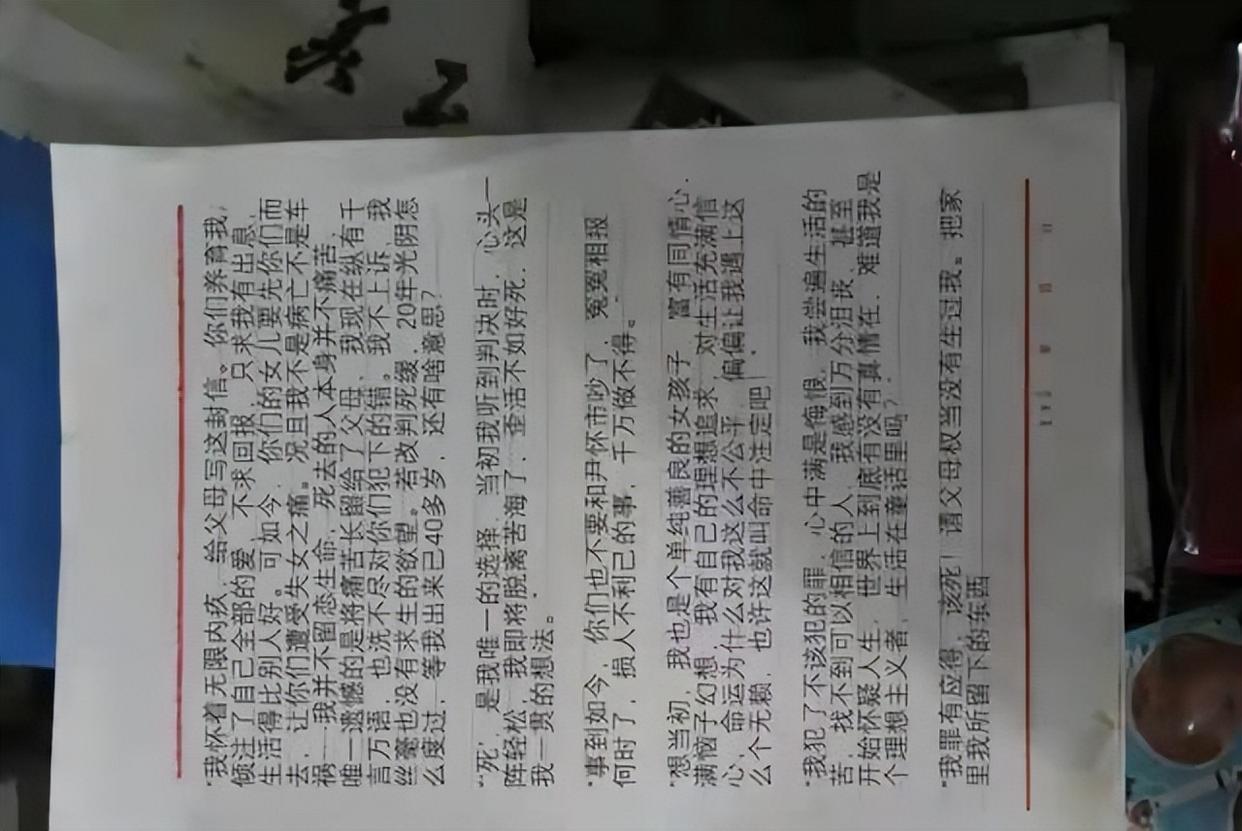 "我怀着无限内疚，给父母写这封信。你们养育我，
倾注了自己全部的爱，不求回报，只求我有出息，
生活得比别人好。可如今，你们的女儿要先你们而
去，让你们遭受失女之痛。况且我不是病亡不是车
祸……我并不留恋生命，死去的人本身并不痛苦，
唯一遗憾的是将痛苦长留给了父母，我现在纵有千
言万语，也洗不尽对你们犯下的错。我不上诉，我
丝毫也没有求生的欲望。若改判死缓，20年光阴怎
么度过，等我出来已40多岁，还有啥意思？
"死，是我唯一的选择，当初我听到判决时，心头一
阵轻松，我即将脱离苦海了，歪活不如好死，这是
我一贯的想法。
"事到如今，你们也不要和尹怀市吵了，冤冤相报
何时了，损人不利己的事，千万做不得。
"想当初，我也是个单纯善良的女孩子，富有同情心，
满脑子幻想，我有自己的理想追求，对生活充满信
心，命运为什么对我这么不公平，偏偏让我遇上这
么个无赖，也许这就叫命中注定吧！
"我犯了不该犯的罪，心中满是悔恨，我尝遍生活的
苦，找不到可以相信的人，我感到万分沮丧，甚至
开始怀疑人生，世界上到底有没有真情在，难道我是
个理想主义者，生活在童话里吗？
"我罪有应得，该死！请父母权当没有生过我。把家
里我所留下的东西